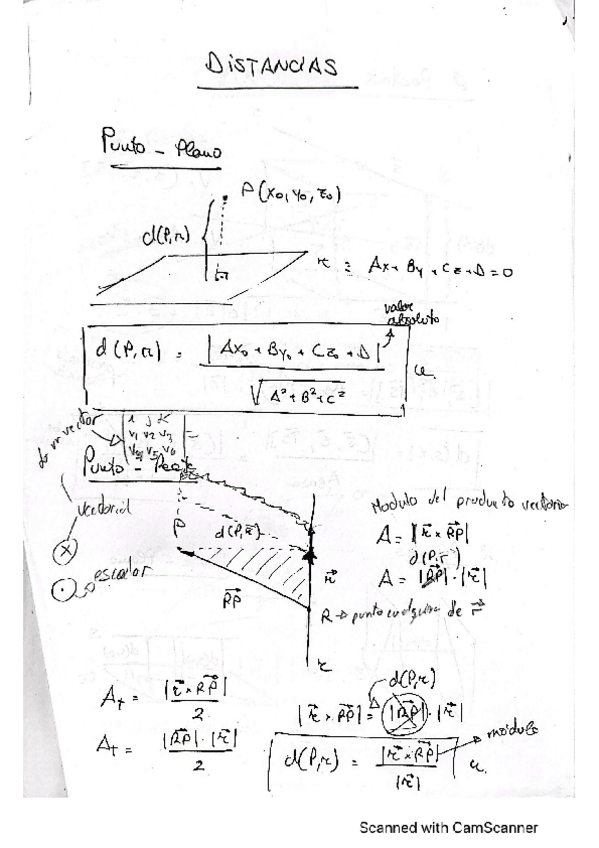 DISTANCIAS
Punto - Plano
P(x₀, y₀, z₀)
d(P,π)
π ≡ Ax + By + Cz + D = 0
valor
absoluto
d(P,π) = |Ax₀ + By₀ + Cz₀ + D| / √(A² + B² + C²) u.
da un vector
i j k
v₁ v₂ v₃
v₄ v₅ v₆
Punto - Recta
vectorial
×
escalar
·
P
d(P,r)
RP
r
R → punto cualquiera de r
r
Modulo del producto vectorial
A = |r × RP|
d(P,r)
A = |RP| · |r|
At = |r × RP| / 2
At = |RP| · |r| / 2
d(P,r)
|r × RP| = |RP| · |r|
d(P,r) = |r × RP| / |r| u.
módulo
Scanned with CamScanner